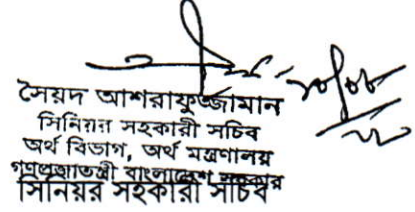 সৈয়দ আশরাফুজ্জামান
সিনিয়র সহকারী সচিব
অর্থ বিভাগ, অর্থ মন্ত্রণালয়
গণপ্রজাতন্ত্রী বাংলাদেশ সরকার
সিনিয়র সহকারী সচিব